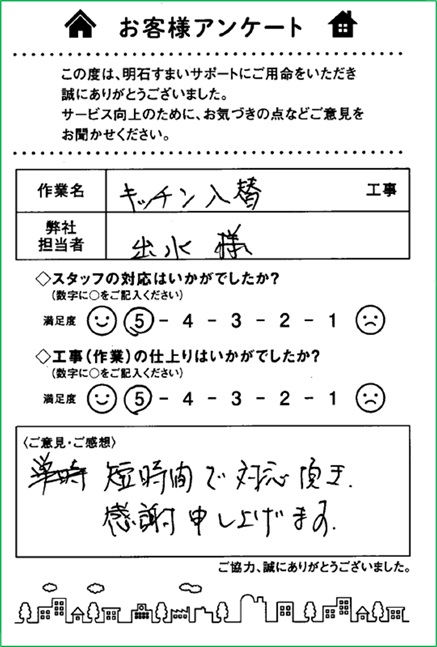 お客様アンケート
この度は、明石すまいサポートにご用命をいただき
誠にありがとうございました。
サービス向上のために、お気づきの点などご意見を
お聞かせください。
作業名 キッチン入替 工事
弊社
担当者 出水 様
◇スタッフの対応はいかがでしたか?
(数字に○をご記入ください)
満足度 5 - 4 - 3 - 2 - 1
◇工事(作業)の仕上りはいかがでしたか?
(数字に○をご記入ください)
満足度 5 - 4 - 3 - 2 - 1
〈ご意見・ご感想〉
短時間で対応頂き、
感謝申し上げます。
ご協力、誠にありがとうございました。